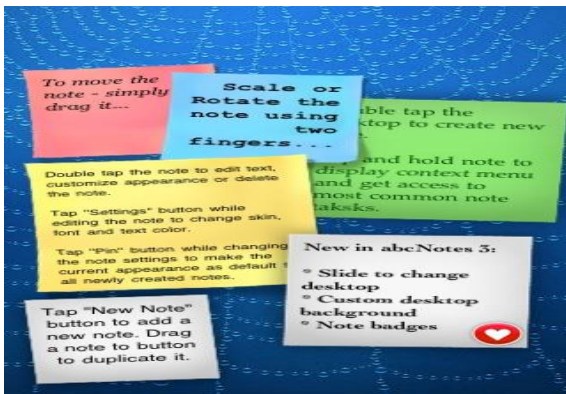 To move the
note - simply
drag it...
Scale or
Rotate the
note using
two
fingers...
ble tap the
ktop to create new
and hold note to
display context menu
and get access to
most common note
taksks.
Double tap the note to edit text,
customize appearance or delete
the note.
Tap "Settings" button while
editing the note to change skin,
font and text color.
Tap "Pin" button while changing
the note settings to make the
current appearance as default
all newly created notes.
New in abcNotes 3:
* Slide to change
desktop
* Custom desktop
background
* Note badges
Tap "New Note"
button to add a
new note. Drag
a note to button
to duplicate it.